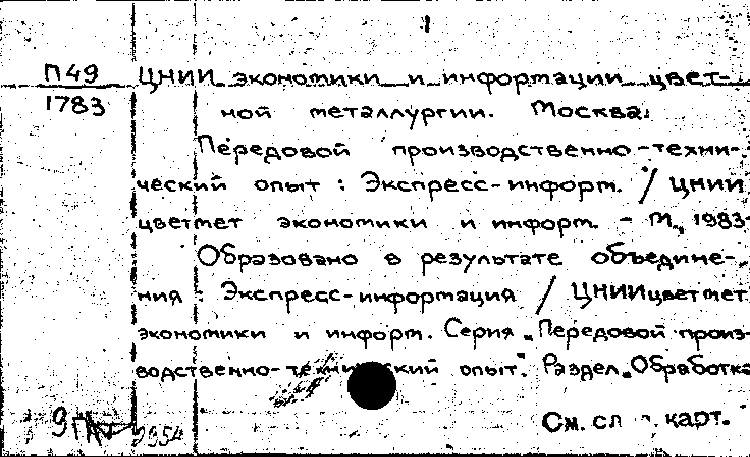 П49
1783
ЦНИИ экономики и информации цвет-
ной металлургии. Москва.
Передовой производственно-техни-
ческий опыт : Экспресс-информ. / ЦНИИ
цветмет экономики и информ. – М., 1983-
Образовано в результате объедине-
ния : Экспресс-информация / ЦНИИцветмет
экономики и информ. Серия „Передовой произ-
водственно-технический опыт". Раздел „Обработка
См. сл . карт.